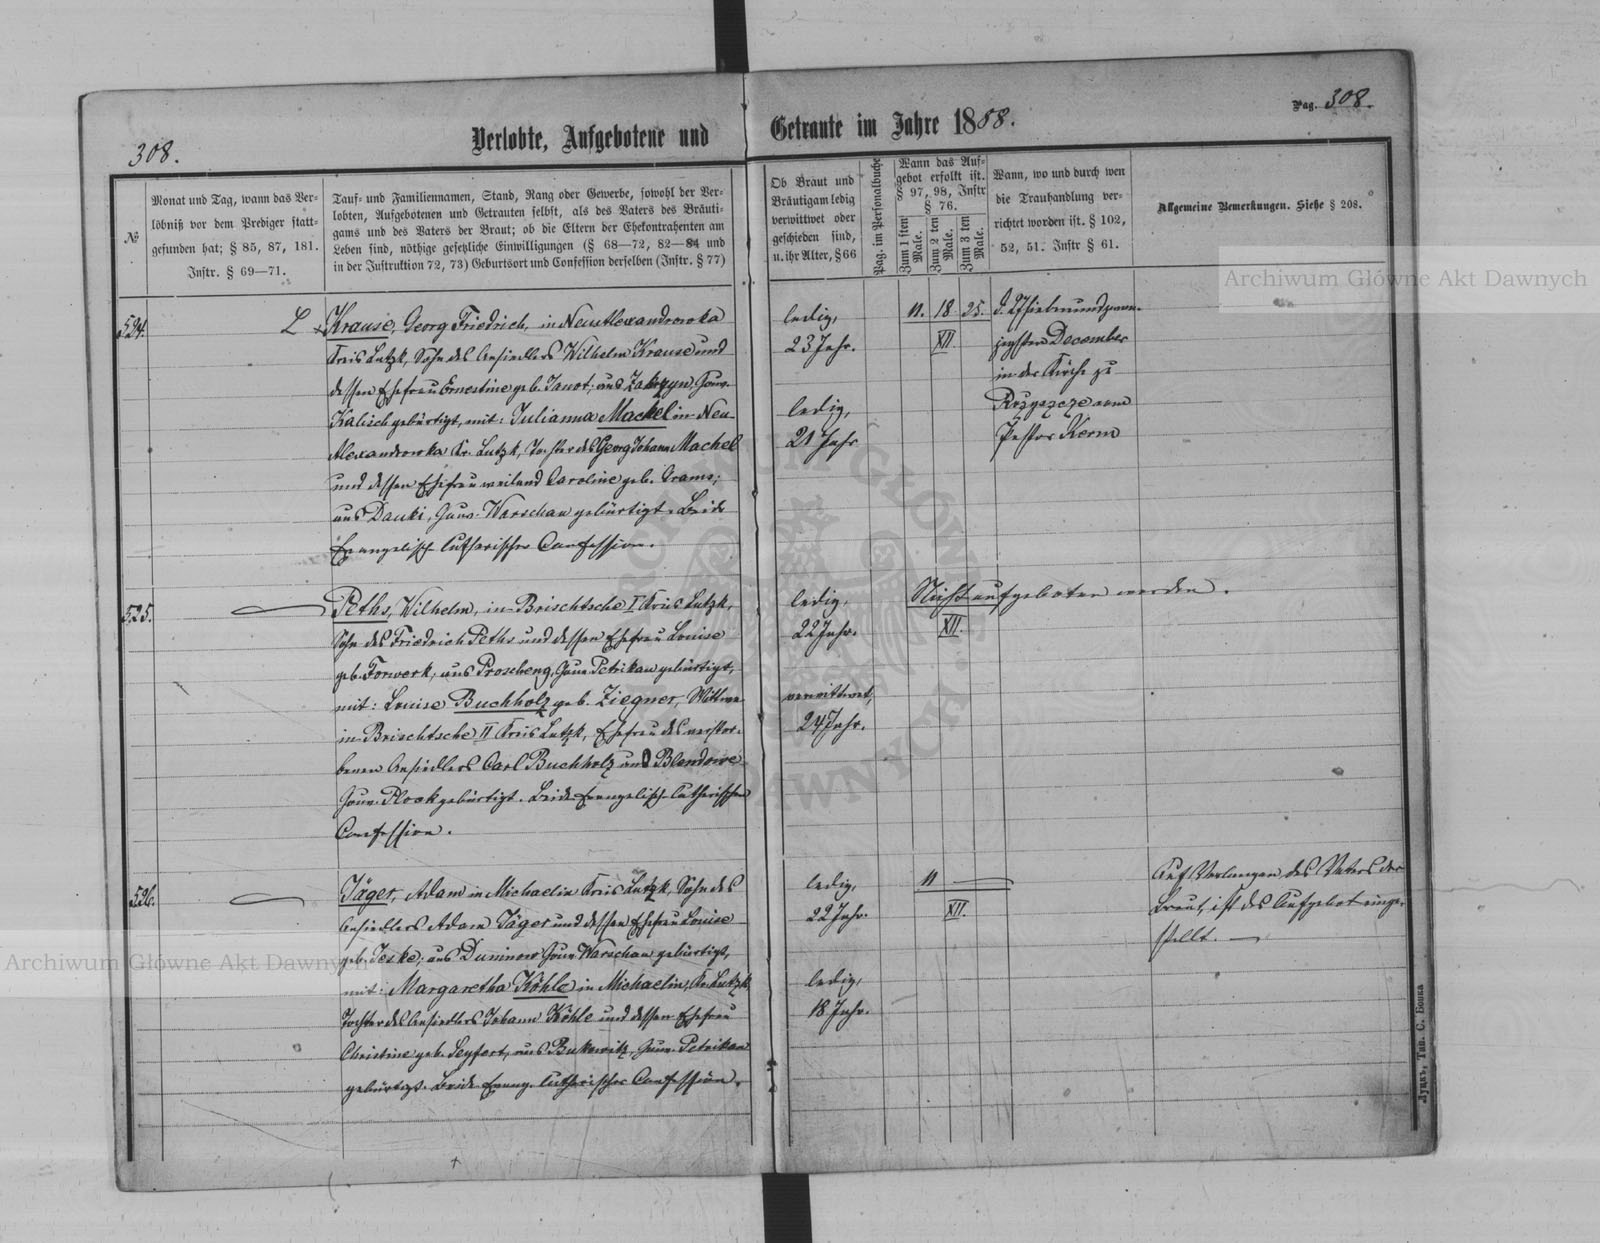 308.
Verlobte, Aufgebotene und
Getraute im Jahre 1888.
Pag. 308.
№
Monat und Tag, wann das Ver-
löbniß vor dem Prediger statt-
gefunden hat; § 85, 87, 181.
Instr. § 69—71.
Tauf- und Familiennamen, Stand, Rang oder Gewerbe, sowohl der Ver-
lobten, Aufgebotenen und Getrauten selbst, als des Vaters des Bräuti-
gams und des Vaters der Braut; ob die Eltern der Ehekontrahenten am
Leben sind, nöthige gesetzliche Einwilligungen (§ 68—72, 82—84 und
in der Instruktion 72, 73) Geburtsort und Confession derselben (Instr. § 77)
Ob Braut und
Bräutigam ledig
verwittwet oder
geschieden sind,
u. ihr Alter, § 66
Pag. im Personalbuche
Wann das Auf-
gebot erfollt ist.
§ 97, 98, Instr
§ 76.
Zum 1 sten Male.
Zum 2 ten Male.
Zum 3 ten Male.
Wann, wo und durch wen
die Trauhandlung ver-
richtet worden ist. § 102,
52, 51. Instr § 61.
Allgemeine Bemerkungen. Siehe § 208.
524.
L
Krause, Georg Friedrich, in Neu Alexandrowka
Kreis Lutzk, Sohn des Ansiedlers Wilhelm Krause und
dessen Ehefrau Ernestine geb. Janot; aus Zakrzyn, Gouv.
Kalisch gebürtigt, mit: Julianna Mackel in Neu-
Alexandrowka Kr. Lutzk, Tochter des Georg Johann Machel
und dessen Ehefrau weiland Caroline geb. Grams;
aus Dauki, Gouv. Warschau gebürtigt. Beide
Evangelisch lutherischer Confession.
ledig,
23 Jahr.
ledig,
21 Jahr
11. 18. 25.
XII
d. 27 siebenundzwan-
zigsten December
in der Kirche zu
Rozyszcze vom
Pastor Kerm
525.
Peths, Wilhelm, in Brischtsche I Kreis Lutzk,
Sohn des Friedrich Peths und dessen Ehefrau Louise
geb. Forwerk, aus Proscheng, Gouv. Petrikau gebürtigt,
mit: Louise Buchholz geb. Ziegner, Wittwe
in Brischtsche II Kreis Lutzk, Ehefrau des verstor-
benen Ansiedlers Carl Buchholz aus Blendowe
Gouv. Plock gebürtigt. Beide Evangelisch lutherischer
Confession.
ledig,
22 Jahr.
verwittwet,
24 Jahr.
Nicht aufgeboten worden.
XII.
526.
Jäger, Adam in Michaelin Kreis Lutzk, Sohn des
Ansiedlers Adam Jäger und dessen Ehefrau Louise
geb. Jeske; aus Duninow Gouv. Warschau gebürtigt,
mit: Margaretha Köhle in Michaelin, Kr. Lutzk
Tochter des Ansiedlers Johann Köhle und dessen Ehefrau
Christine geb. Seyfert, aus Bukowitz, Gouv. Petrikau
gebürtigt. Beide Evang. lutherischer Confession.
ledig,
22 Jahr.
ledig,
18 Jahr.
11
XII.
Auf Verlangen des Vaters der
Braut, ist das Aufgebot einge-
stellt.
Луцкъ, Тип. С. Бонка
Archiwum Główne Akt Dawnych
Archiwum Główne Akt Dawnych